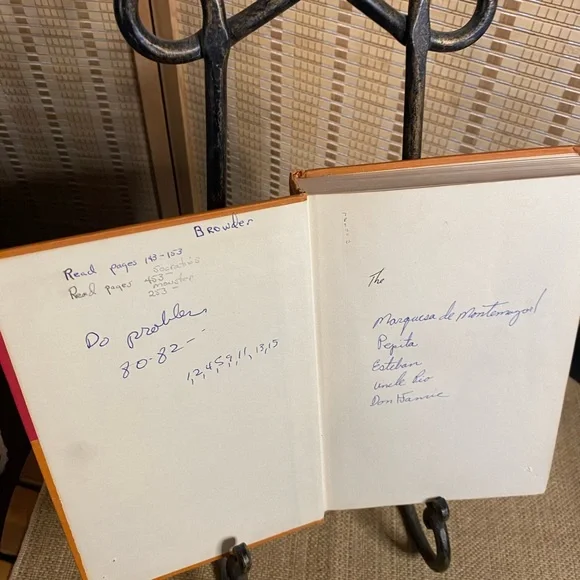 Browder
Read pages 143-153
Socratus
Read pages 453-
monster
253 -
Do problem
80-82--
1,2,4,5,9,11,13,15
The
Marquesa de Montemayor
Pepita
Esteban
Uncle Pio
Don Jamie